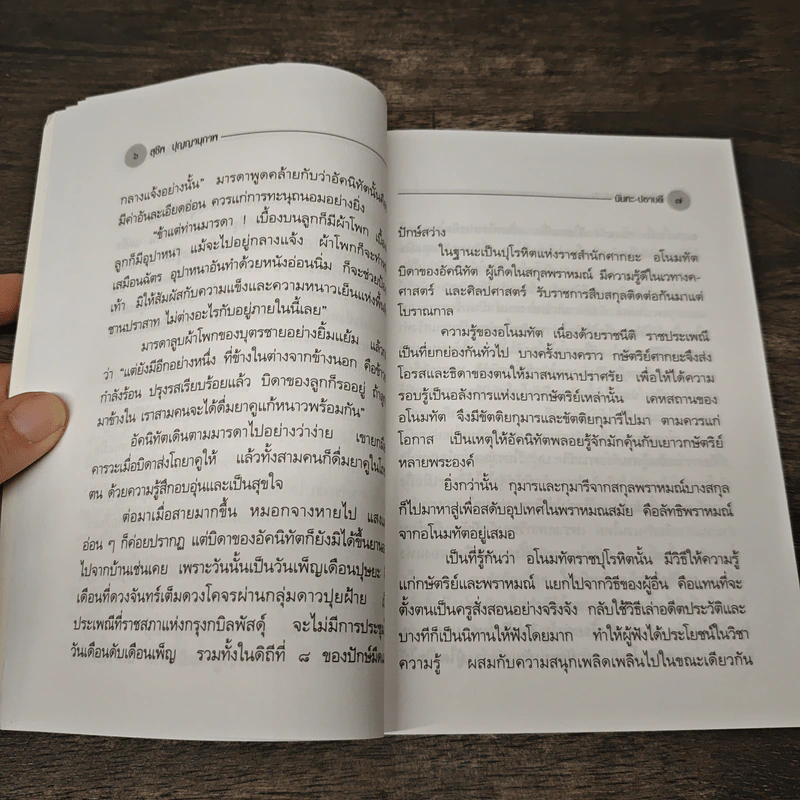 ๖ สุชีพ ปุญญานุภาพ
กลางแจ้งอย่างนั้น” มารดาพูดคล้ายกับว่าอัคนิทัตนั้น
มีค่าอันละเอียดอ่อน ควรแก่การทะนุถนอมอย่างยิ่ง
“ข้าแต่ท่านมารดา ! เบื้องบนลูกก็มีผ้าโพก
ลูกก็มีอุปาหนา แม้จะไปอยู่กลางแจ้ง ผ้าโพกก็จะ
เสมือนฉัตร อุปาหนาอันทำด้วยหนังอ่อนนิ่ม ก็จะช่วย
เท้า มิให้สัมผัสกับความแข็งและความหนาวเย็นแห่งพื้น
ชานปราสาท ไม่ต่างอะไรกับอยู่ภายในนี้เลย”
มารดาลูบผ้าโพกของบุตรชายอย่างยิ้มแย้ม
ว่า “แต่ยังมีอีกอย่างหนึ่ง ที่ข้างในต่างจากข้างนอก คือ
กำลังร้อน ปรุงรสเรียบร้อยแล้ว บิดาของลูกก็รออยู่
มาข้างใน เราสามคนจะได้ดื่มยาคูแก้หนาวพร้อมกัน”
อัคนิทัตเดินตามมารดาไปอย่างว่าง่าย เขายก
คารวะเมื่อบิดาส่งโถยาคูให้ แล้วทั้งสามคนก็ดื่มยาคูใน
ตน ด้วยความรู้สึกอบอุ่นและเป็นสุขใจ
ต่อมาเมื่อสายมากขึ้น หมอกจางหายไป
อ่อน ๆ ก็ค่อยปรากฏ แต่บิดาของอัคนิทัตก็ยังมิได้ขึ้น
ไปจากบ้านเช่นเคย เพราะวันนั้นเป็นวันเพ็ญเดือนปุษยะ
เดือนที่ดวงจันทร์เต็มดวงโคจรผ่านกลุ่มดาวปุยฝ้าย
ประเพณีที่ราชสภาแห่งกรุงกบิลพัสดุ์ จะไม่มีการ
วันเดือนดับเดือนเพ็ญ รวมทั้งในดิถีที่ ๘ ของปักษ์
นันทะ-ปชาบดี ๗
ปักษ์สว่าง
ในฐานะเป็นปุโรหิตแห่งราชสำนักศากยะ อโนมทัต
บิดาของอัคนิทัต ผู้เกิดในสกุลพราหมณ์ มีความรู้ดีในเวทางค-
ศาสตร์ และศิลปศาสตร์ รับราชการสืบสกุลติดต่อกันมาแต่
โบราณกาล
ความรู้ของอโนมทัต เนื่องด้วยราชนีติ ราชประเพณี
เป็นที่ยกย่องกันทั่วไป บางครั้งบางคราว กษัตริย์ศากยะจึงส่ง
โอรสและธิดาของตนให้มาสนทนาปราศรัย เพื่อให้ได้ความ
รอบรู้เป็นอลังการแห่งเยาวกษัตริย์เหล่านั้น เคหสถานของ
อโนมทัต จึงมีขัตติยกุมารและขัตติยกุมารีไปมา ตามควรแก่
โอกาส เป็นเหตุให้อัคนิทัตพลอยรู้จักมักคุ้นกับเยาวกษัตริย์
หลายพระองค์
ยิ่งกว่านั้น กุมารและกุมารีจากสกุลพราหมณ์บางสกุล
ก็ไปมาหาสู่เพื่อสดับอุปเทศในพราหมณสมัย คือลัทธิพราหมณ์
จากอโนมทัตอยู่เสมอ
เป็นที่รู้กันว่า อโนมทัตราชปุโรหิตนั้น มีวิธีให้ความรู้
แก่กษัตริย์และพราหมณ์ แยกไปจากวิธีของผู้อื่น คือแทนที่จะ
ตั้งตนเป็นครูสั่งสอนอย่างจริงจัง กลับใช้วิธีเล่าอดีตประวัติและ
บางทีก็เป็นนิทานให้ฟังโดยมาก ทำให้ผู้ฟังได้ประโยชน์ในวิชา
ความรู้ ผสมกับความสนุกเพลิดเพลินไปในขณะเดียวกัน